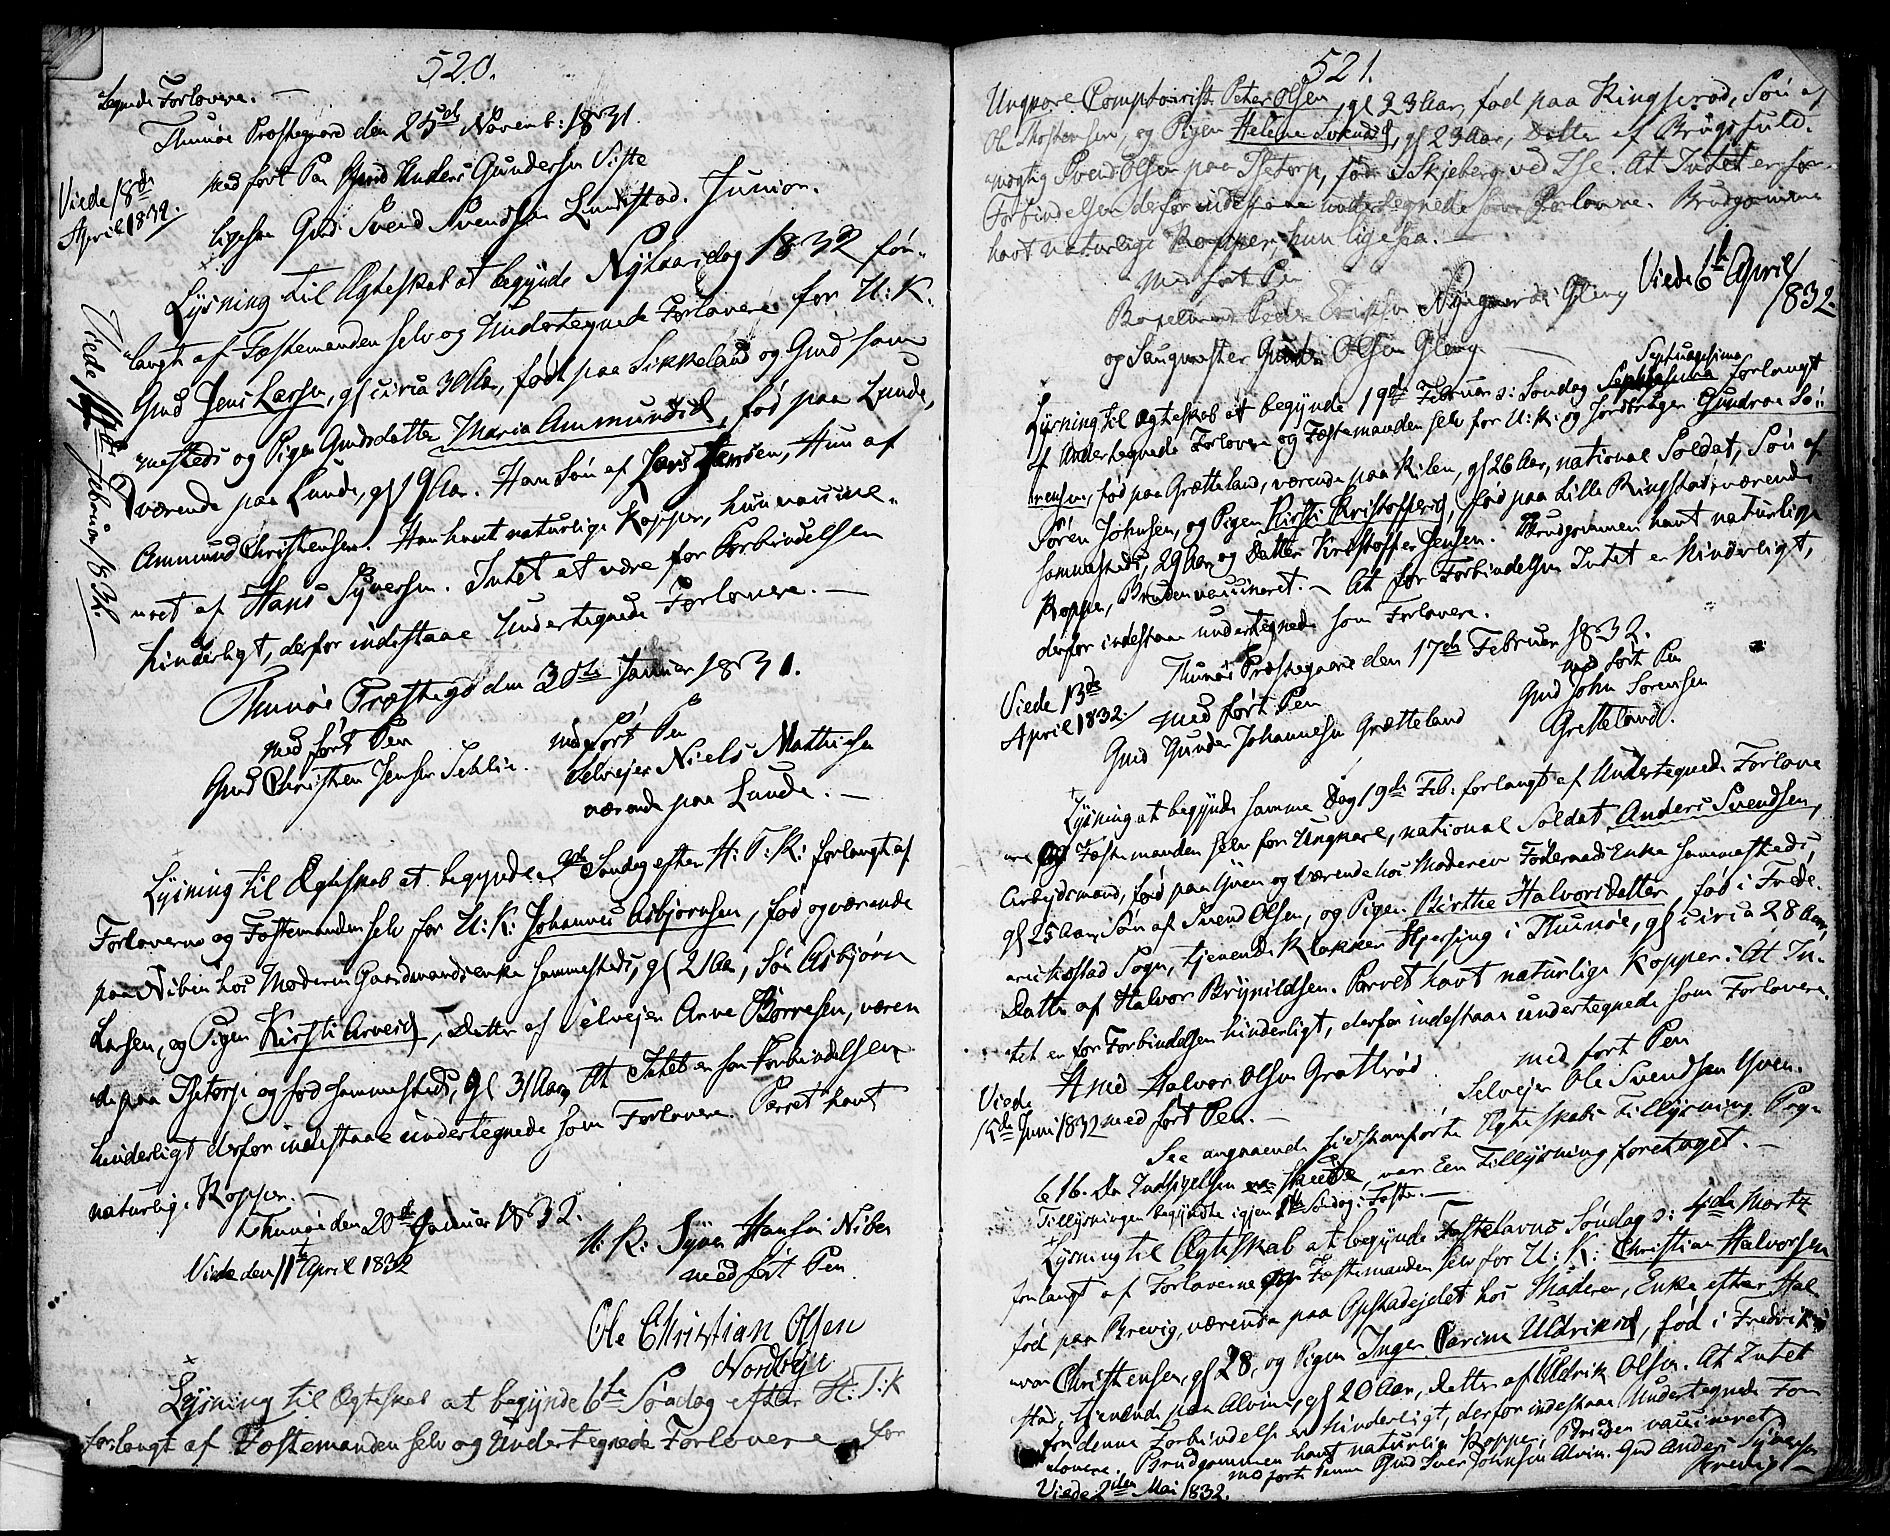 520.
tegnede Forlovere. —
Thunøe Præstegaard den 25de Novemb: 1831.
med ført Pen Gmd Anders Gundersen Viste
Viede 18de
April 1832.
ligesaa Gmd Svend Svendsen Lundestad. Junior.
Lysning til Ægteskab at begynde Nytaarsdag 1832 for-
langt af Fæstemanden selv og Undertegnede Forlovere for U: K:
Gmd Jens Larsen, gl circa 30 Aar, født paa Sikkeland og Gmd sam-
mesteds og Pigen Gmdsdatter Maria Ammundsd, fød paa Lunde,
værende paa Lunde, gl 19 Aar. Han Søn af Lars Jensen, Hun af
Ammund Christensen. Han havt naturlige Kopper, hun vaccine-
Viede Februar 1832.
neret af Hans Syversen. Intet at være for Forbindelsen
hinderligt, derfor indestaae Undertegnede Forlovere. —
Thunøe Præstegd den 30te Januar 1831.
med ført Pen
Gmd Christen Jensen Sehlin.
med ført Pen
Selvejer Niels Mathisen
værende paa Lunde. —
Lysning til Ægteskab at begynde Søndag efter H: T: K: forlangt af
Forloverne og Fæstemanden selv for U: K: Johannes Asbjørnsen, fød og værende
paa Nibin hos Moderen Gaardmandsenke sammesteds, gl 21 Aar, Søn Asbjørn
Larsen, og Pigen Kirsti Arvesd, Datter af Selvejer Arve Børresen, væren
de paa Isetorp og fød sammesteds, gl 31 Aar, At Intet er for Forbindelsen
hinderligt derfor indestaae undertegnede som Forlovere. Parret havt
naturlige Kopper. —
Thunøe den 20de Januar 1832.
Viede den 11te April 1832
U: K: Syver Hansen Niben
med ført Pen
Ole Christian Olsen
Nordbye
Lysning til Ægteskab at begynde 6te Søndag efter H: T: K
forlangt af Fæstemanden selv og Undertegnede Forlovere for
521.
Ungkarl Comptoirist Peter Olsen, gl 23 Aar, fød paa Ringserød, Søn af
Ole Thostensen, og Pigen Helene Svendsd, gl 23 Aar, Datter af Brugsfuld-
mægtig Svend Olsen paa Isetorp, født i Skjeberg ved Ise. At Intet er for
Forbindelsen derfor indestaae undertegnede som Forlovere. Brudgommen
havt naturlige Kopper, hun ligesaa. —
Med ført Pen
Peder Eriksen Nygaard i Glemg
og Saugmester Olsen Glemg
Viede 6te April
1832.
Lysning til Ægteskab at begynde 19de Februar o: Søndag Septuagesima forlangt
af Undertegnede Forlovere og Fæstemanden selv for U: K: og Jordbruger Gundroe Sø-
rensen, fød paa Grætteland, værende paa Kilen, gl 26 Aar, national Soldat, Søn af
Søren Johnsen, og Pigen Kirsti Kristoffersd, fød paa Lille Ringstad, værende
sammesteds, 29 Aar og Datter Kristoffer Jensen. Brudgommen havt naturlige
Kopper, Bruden vaccineret. — At for Forbindelsen Intet er hinderligt,
derfor indestaae undertegnede som Forlovere.
Thunøe Præstegaard den 17de Februar 1832.
Viede 13de
April 1832.
med ført Pen
Gmd Gunder Johannesen Grætteland
med ført Pen
Gmd John Sørensen
Gretteland.
Lysning at begynde samme Dag 19de Feb: forlangt af Undertegnede Forlove
re og Fæstemanden selv for Ungkarl, national Soldat Anders Svendsen,
Arbejdsmand, fød paa Yven og værende hos Moderen Føderaads Enke sammesteds
gl 25 Aar, Søn af Svend Olsen, og Pigen Birthe Halvorsdatter, fød i Frede-
rikstad Sogn, tjenende Klokker Hpersing i Thunøe, gl circa 28 Aar,
Datter af Halvor Brynildsen. Parret havt naturlige Kopper. At In-
tet er for Forbindelsen hinderligt, derfor indestaae undertegnede som Forlovere.
Halvor Olsen Grøttrød
med ført Pen
Selvejer Ole Svendsen Yven.
Viede
Juni 1832 med ført Pen. —
See angaaende sidstanførte Ægteskabs Tillysning Pag:
616. Da Indsigelsen skeede, var Een Tillysning foretaget. —
Tillysningen begyndte igjen 1ste Søndag i Faste. —
Lysning til Ægteskab at begynde Fastelavns Søndag o: 4de Marts
forlangt af Forloverne og Fæstemanden selv for U: K: Christian Halvorsen
fød paa Brevig, værende paa Opstadejdet hos Moderen, Enke efter Hal
vor Christensen, gl 28, og Pigen Inger Carine Uldriksd, fød i Fredrik-
stad, tjenende paa Alvim, gl 20 Aar, Datter af Uldrik Olsen. At Intet
for denne Forbindelse er hinderligt, derfor indestaae Undertegnede For
lovere. Brudgommen havt naturlige Kopper, Bruden vaccineret
med ført Penne Gmd Iver Johnsen Alvim. Gmd Anders Syversen
Brevig —
Viede 2den Mai 1832.